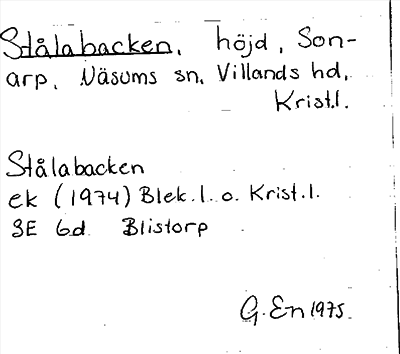 Stålabacken, höjd, Son-
arp, Näsums sn, Villands hd,
Krist.l.
Stålabacken
ek (1974) Blek.l. o. Krist.l.
3E 6d Blistorp
G.En 1975.